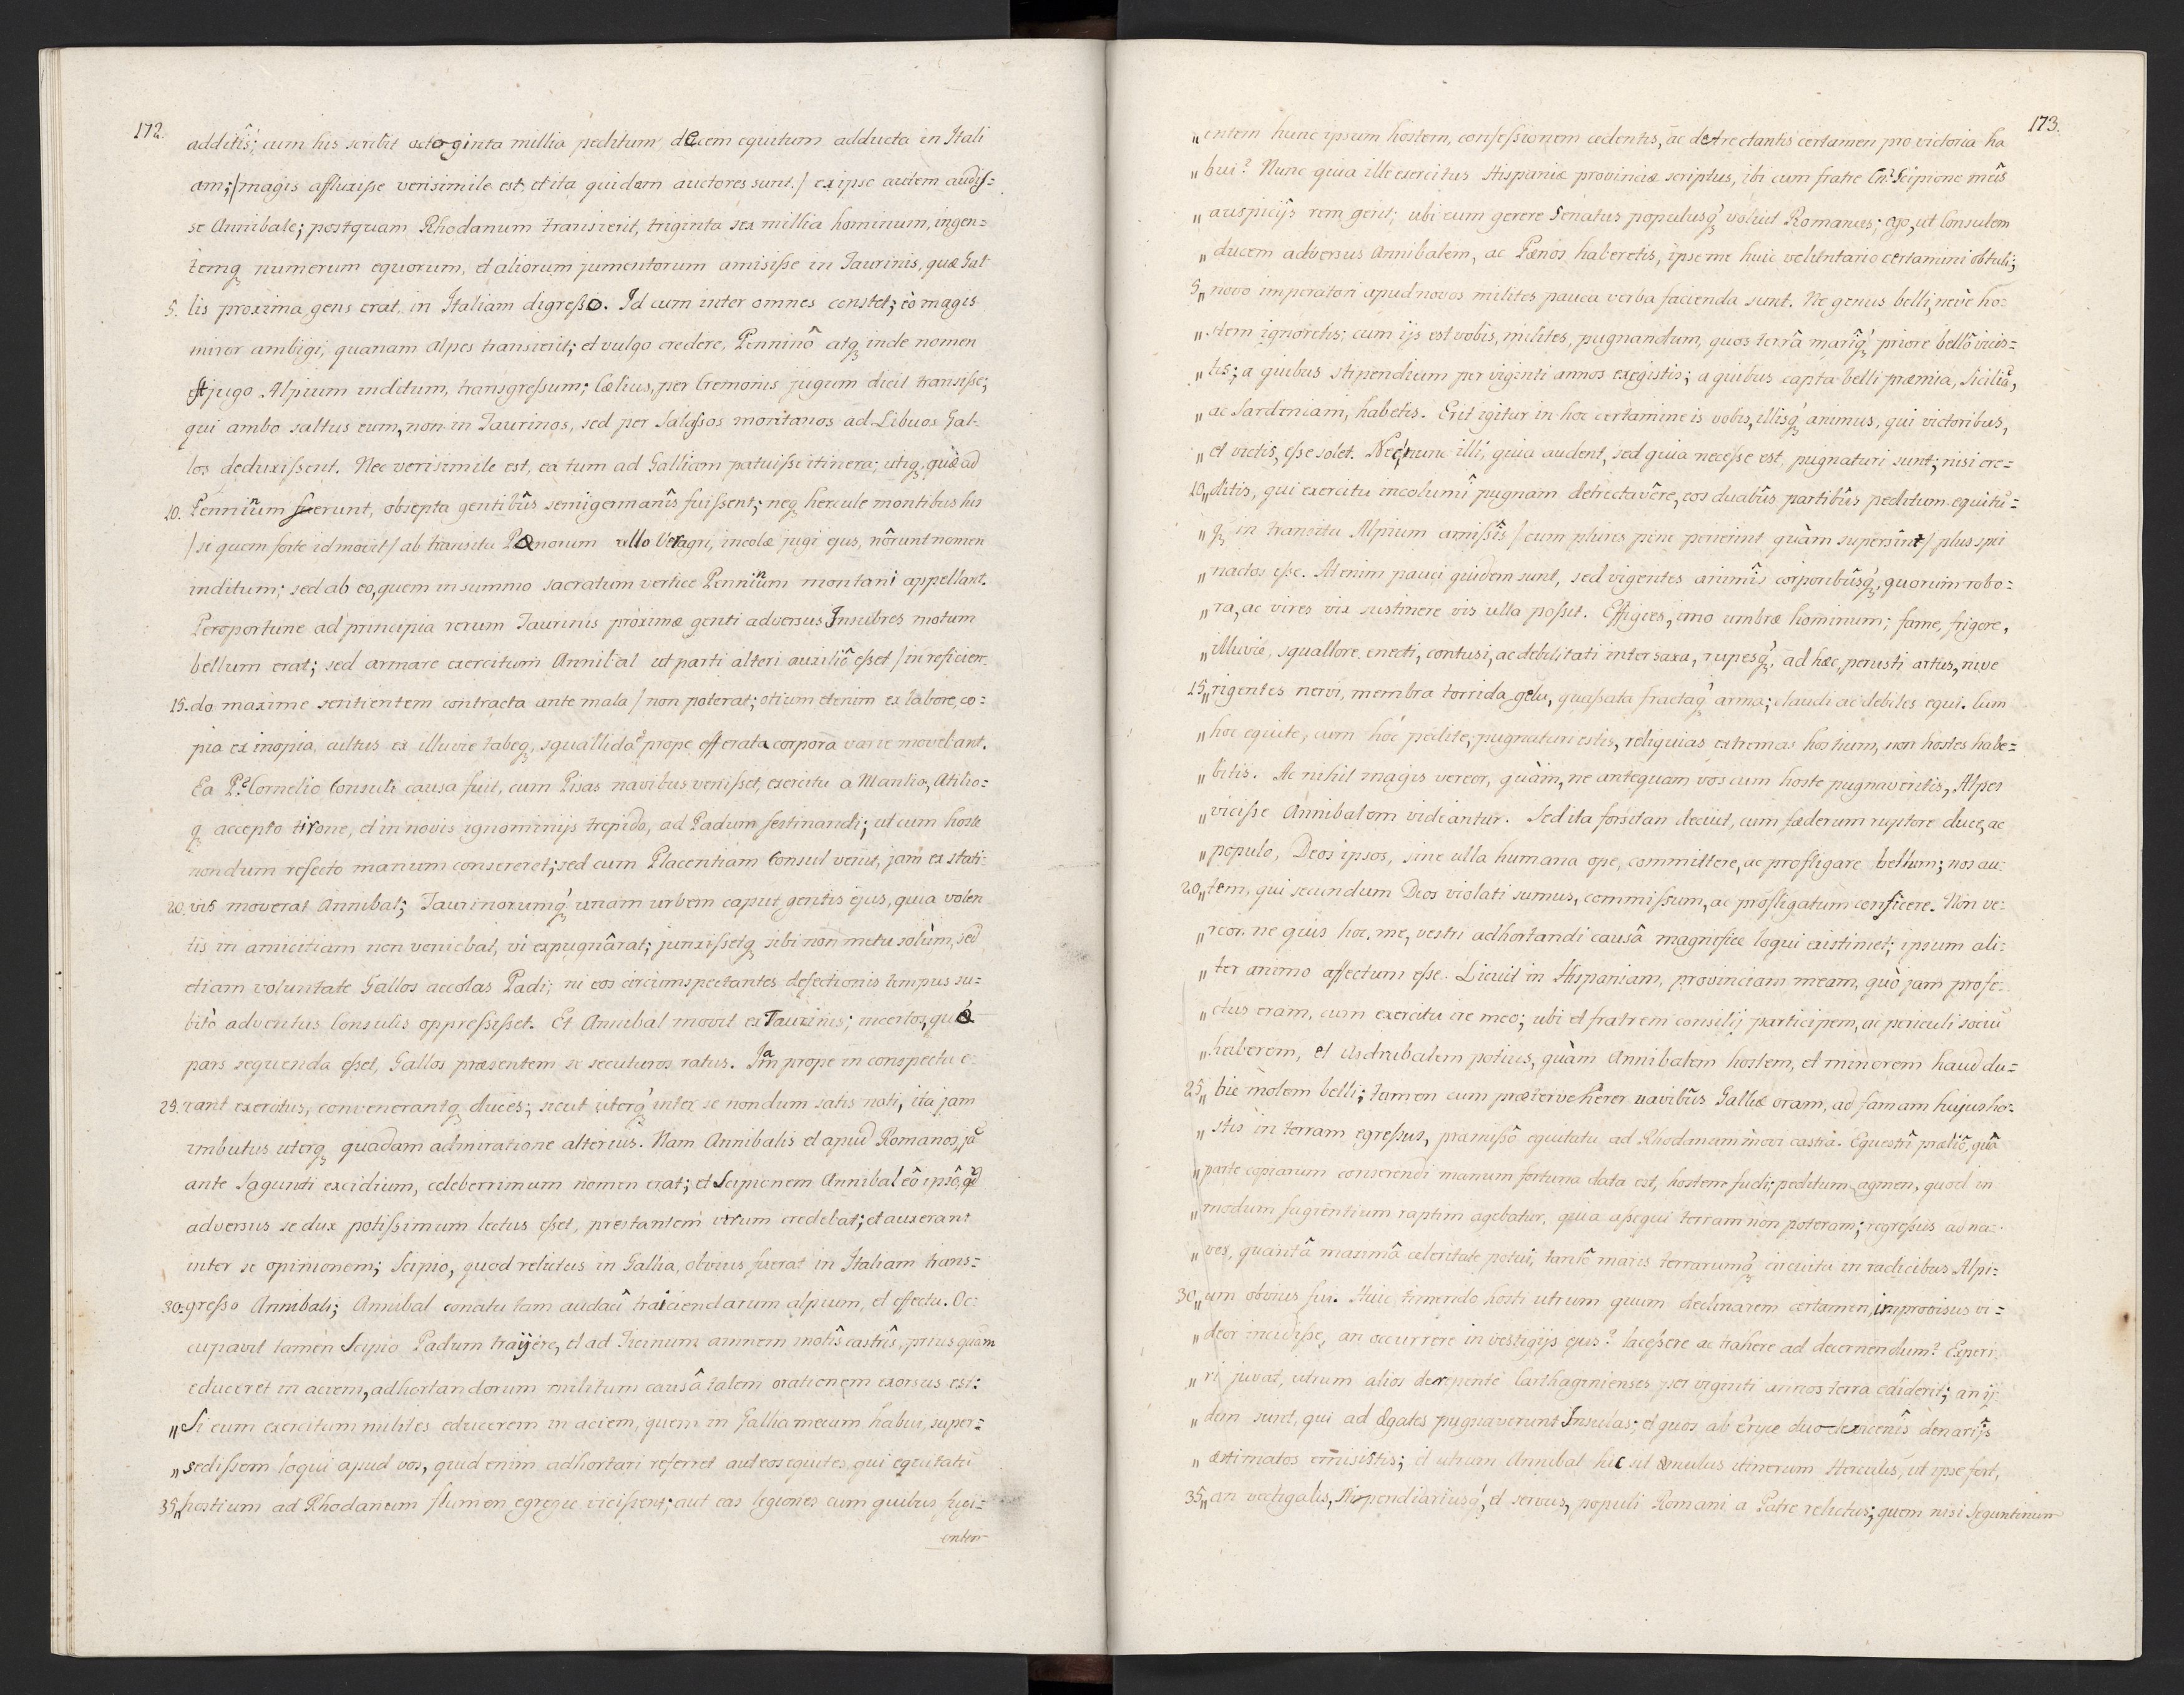 172.
additîs; cum his scribit octoginta millia peditum decem equitum adducta in Itali
am; /magis affluxisse verisimile est, et ita quidam auctores sunt./ ex ipso autem audis=
se Annibale; postquam Rhodanum transierit, triginta sex millia hominum, ingen=
temq̨ numerum equorum, et aliorum jumentorum amisisse in Taurinis, quæ Gal
5. lis proxima gens erat, in Italiam digresso. Id cum inter omnes constet; eò magis
miror ambigi, quanam Alpes transierit; et vulgo credere, Penninô atq̨ inde nomen
et jugo Alpium inditum, transgressum; Cælius, per Cremonis jugum dicit transisse;
qui ambo saltus eum, non in Taurinos, sed per Salassos montanos ad Libuos Gal=
los deduxissent. Nec verisimile est, ea tum ad Galliam patuisse itinera; utiq̨, quæ ad
10. Penninum ferunt, obsepta gentibûs semigermanîs fuissent; neq̨ hercule montibus his
/si quem forte id movet/ ab transitu Pænorum ullo Veragri, incolæ jugi ejus, nôrunt nomen
inditum; sed ab eo, quem in summo sacratum vertice Penninum montani appellant.
Peroportune ad principia rerum Taurinis proximæ genti adversus Insubres motum
bellum erat; sed armare exercitum Annibal ut parti alteri auxiliô esset /in reficien=
15. do maxime sentientem contracta ante mala/ non poterat; otium etenim ex labore, co=
pia ex inopia, cultus ex illuvie tabeq̨, squallida et prope efferata corpora varie movebant.
Ea P. Cornelio Consuli causa fuit, cum Pisas navibus venisset, exercitu a Manlio, Atilio=
q̨ accepto tirone, et in novis ignominijs trepido, ad Padum festinandi; ut cum hoste
nondum refecto manum consereret; sed cum Placentiam Consul venit, jam ex stati=
20. vis moverat Annibal; Taurinorumq̨ unam urbem caput gentis ejus, quia volen
tis in amicitiam non veniebat, vi expugnârat; junxissetq̨ sibi non metu solùm, sed
etiam voluntate Gallos accolas Padi; ni eos circumspectantes defectionis tempus su=
bitò adventus Consulis oppressisset. Et Annibal movit ex Taurinis; incertos, quæ
pars sequenda esset, Gallos præsentem se secuturos ratus. Jam prope in conspectu e=
25. rant exercitus, convenerantq̨ duces; sicut uterq̨ inter se nondum satis noti, ita jam
imbutus uterq̨ quadam admiratione alterius. Nam Annibalis et apud Romanos, jã
ante Sagunti excidium, celeberrimum nomen erat; et Scipionem Annibal eô ipsô, qd
adversus se dux potissimum lectus esset, prestantem virum credebat; et auxerant
inter se opinionem; Scipio, quod relictus in Gallia, obvius fuerat in Italiam trans=
30. gresso Annibali; Annibal conatu tam audaci traiciendarum alpium, et effectu. Oc
cupavit tamen Scipio Padum trayere, et ad Ticinum amnem motîs castrîs, prius quàm
educeret in aciem, adhortandorum militum causâ talem orationem exorsus est:
„ Si eum exercitum milites educerem in aciem, quem in Gallia mecum habui, super=
„ sedissem loqui apud vos, quid enim adhortari referret aut eos equites, qui equitatũ
35. „ hostium ad Rhodanum flumen egregie vicissent; aut eas legiones cum quibus fugi=
entem
173.
„ entem hunc ipsum hostem, confessionem cedentis, ac detrectantis certamen pro victoria ha
„ bui? Nunc quia ille exercitus Hispaniæ provinciæ scriptus, ibi cum fratre Cn. Scipione meîs
„ auspicijs rem gerit; ubi eum gerere Senatus populusq̨ voluit Romanus; ego, ut Consulem
„ ducem adversus Annibalem, ac Pænos haberetis, ipse me huic voluntario certamini obtuli;
5. „ novo imperatori apud novos milites pauca verba facienda sunt. Ne genus belli, nevè ho=
„ stem ignoretis; cum ijs est vobis, milites, pugnandum, quos terrâ marîq̨ priore bellô vicis=
„ tis; a quibus stipendium per viginti annos exegistis; a quibus capta belli præmia, Siciliã,
„ ac Sardiniam, habetis. Erit igitur in hoc certamine is vobis, illisq̨ animus, qui victoribus,
„ et victis, esse solet. Nec nunc illi, quia audent, sed quia necesse est, pugnaturi sunt; nisi cre=
10. „ ditis, qui exercitu incolumi pugnam detrectavêre, eos duabûs partibûs peditum equitũ=
„ q̨ in transitu Alpium amissîs /cum plures pene perierint quàm supersint/ plus spei
„ nactos esse. At enim pauci quidem sunt, sed vigentes animîs corporibûsq̨, quorum robo=
„ ra, ac vires vix sustinere vis ulla possit. Effigies, imo umbræ hominum; fame, frigore,
„ illuvie, squallore enecti, contusi, ac debilitati inter saxa, rupesq̨, ad hæc, perusti artus, nive
15. „ rigentes nervi, membra torrida gelu, quassata fractaq̨ arma; claudi ac debiles equi. Cum
„ hoc equite, cum hôc pedite, pugnaturi estis, reliquias extremas hostium, non hostes habe=
„ bitis. Ac nihil magis vereor, quàm, ne antequam vos cum hoste pugnaveritis, Alpes
„ vicisse Annibalem videantur. Sed ita forsitan decuit, cum fæderum ruptore duce, ac
„ populo, Deos ipsos, sine ulla humana ope, committere, ac profligare bellum; nos au=
20. „ tem, qui secundum Deos violati sumus, commissum, ac profligatum conficere. Non ve=
„ reor, ne quis hoc, me, vestri adhortandi causâ magnifice loqui existimet; ipsum ali=
„ ter animo affectum esse. Licuit in Hispaniam, provinciam meam, quò jam profe=
„ ctus eram, cum exercitu ire meo; ubi et fratrem consilij participem, ac periculi sociũ
„ haberem, et Asdrubalem potius, quàm Annibalem hostem, et minorem haud du=
25. „ bie molem belli; tamen cum præterveherer navibûs Galliæ oram, ad famam hujus ho=
„ stis in terram egressus, præmissô equitatu ad Rhodanum movi castra. Equestrî præliô, quâ
„ parte copiarum conserendi manum fortuna data est, hostem fudi; peditum agmen, quod in
„ modum fugientium raptim agebatur, quia assequi terra non poteram; regressus ad na=
„ ves, quantâ maximâ celeritate potui, tantô maris terrarumq̨ circuitu in radicibus Alpi=
30. „ um obvius fui. Huic timendo hosti utrum quum declinarem certamen, improvisus vi=
„ deor incidisse, an occurrere in vestigijs ejus? lacessere ac trahere ad decernendum? Experi
„ ri juvat, utrum alios derepente Carthaginienses per viginti annos terra ediderit; an ij=
„ dem sunt, qui ad Ægates pugnaverunt Insulas; et quos ab Eryce duodevicenîs denarijs
„ æstimatos emisistis; et utrum Annibal hic sit æmulus itinerum Herculis, ut ipse fert,
35. „ an vectigalis, stipendiariusq̨, et servus, populi Romani a Patre relictus; quem nisi Saguntinum